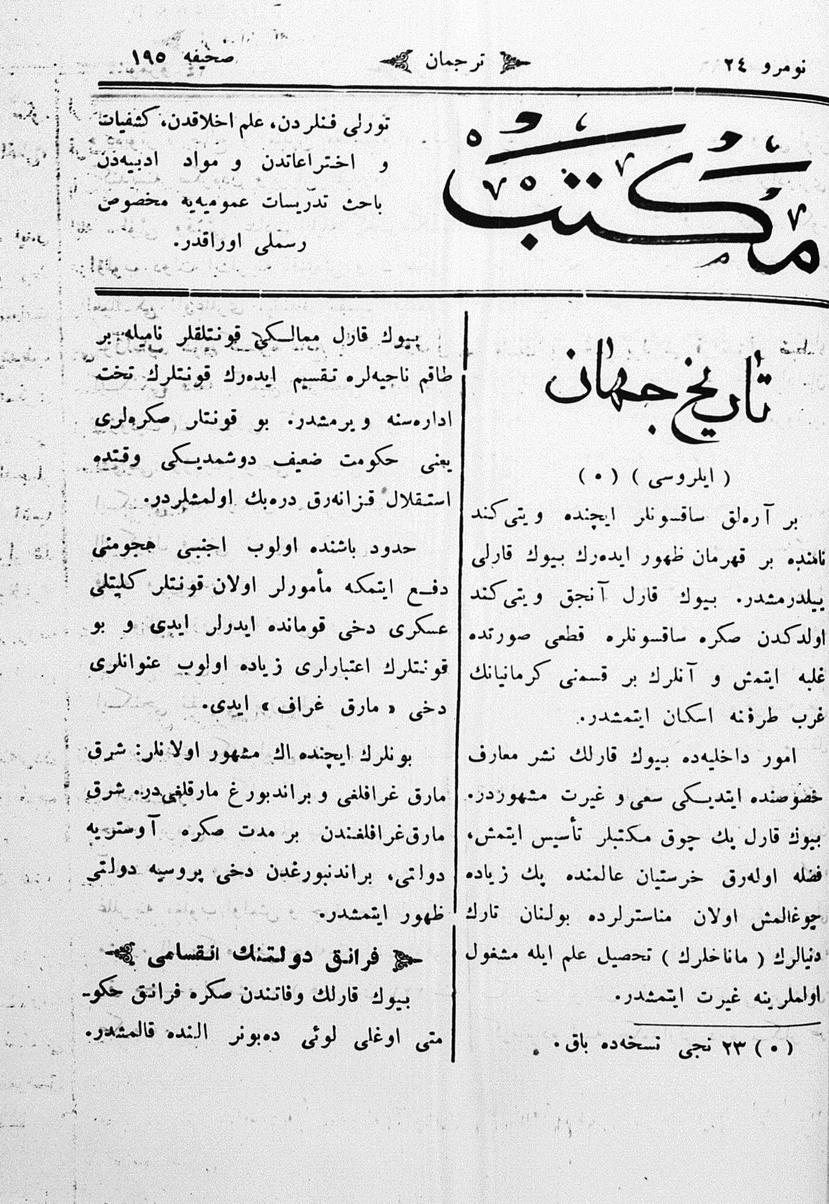 نومرو ٢٤
ترجمان
صحیفه ١٩٥
مكتب
تورلی فنلردن، علم اخلاقدن، كشفیات
و اختراعاتدن و مواد ادبیه‌دن
باحث تدریسات عمومیه‌یه مخصوص
رسملی اوراقدر.
تاریخ جهان
( ایلروسی ) (٥)
بر آره‌لق ساقسونلر ایچنده ویتی‌كند
نامنده بر قهرمان ظهور ایده‌رك بیوك قارلی
ییلدرمشدر. بیوك قارل آنجق ویتی‌كند
اولدكدن صكره ساقسونلره قطعی صورتده
غلبه ایتمش و آنلرك بر قسمنی كرمانیانك
غرب طرفنه اسكان ایتمشدر.
امور داخلیه‌ده بیوك قارلك نشر معارف
خصوصنده ایتدیكی سعی و غیرت مشهوردر.
بیوك قارل پك چوق مكتبلر تأسیس ایتمش،
فضله اوله‌رق خرستیان عالمنده پك زیاده
چوغالمش اولان مناسترلرده بولنان تارك
دنیالرك ( ماناخلرك ) تحصیل علم ایله مشغول
اولملرینه غیرت ایتمشدر.
(٥) ٢٣ نجی نسخه‌ده باق.
بیوك قارل ممالكی قونتلقلر نامیله بر
طاقم ناحیه‌لره تقسیم ایده‌رك قونتلرك تخت
اداره‌سنه ویرمشدر. بو قونتلر صكره‌لری
یعنی حكومت ضعیف دوشمدیكی وقتده
استقلال قزانه‌رق دره‌بك اولمشلردر.
حدود باشنده اولوب اجنبی هجومنی
دفع ایتمكه مأمورلر اولان قونتلر كلیتلی
عسكری دخی قومانده ایدرلر ایدی و بو
قونتلرك اعتبارلری زیاده اولوب عنوانلری
دخی «مارق غراف» ایدی.
بونلرك ایچنده اك مشهور اولانلر: شرق
مارق غرافلغی و براندبورغ مارقلغی‌در. شرق
مارق‌غرافلغندن بر مدت صكره آوستریه
دولتی، براندنبورغدن دخی پروسیه دولتی
ظهور ایتمشدر.
فرانق دولتنك انقسامی
بیوك قارلك وفاتندن صكره فرانق حكو-
متی اوغلی لوئی ده‌بونر النده قالمشدر.